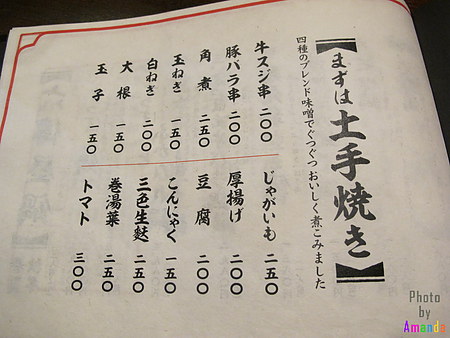 【まずは土手焼き】
四種のブレンド味噌でぐつぐつおいしく煮こみました
牛スジ串 二〇〇
豚バラ串 二〇〇
角煮 二五〇
玉ねぎ 一五〇
白ねぎ 二〇〇
大根 一五〇
玉子 一五〇
じゃがいも 二五〇
厚揚げ 二〇〇
豆腐 二〇〇
こんにゃく 一五〇
三色生麩 二五〇
巻湯葉 二五〇
トマト 三〇〇
Photo
by
Amanda